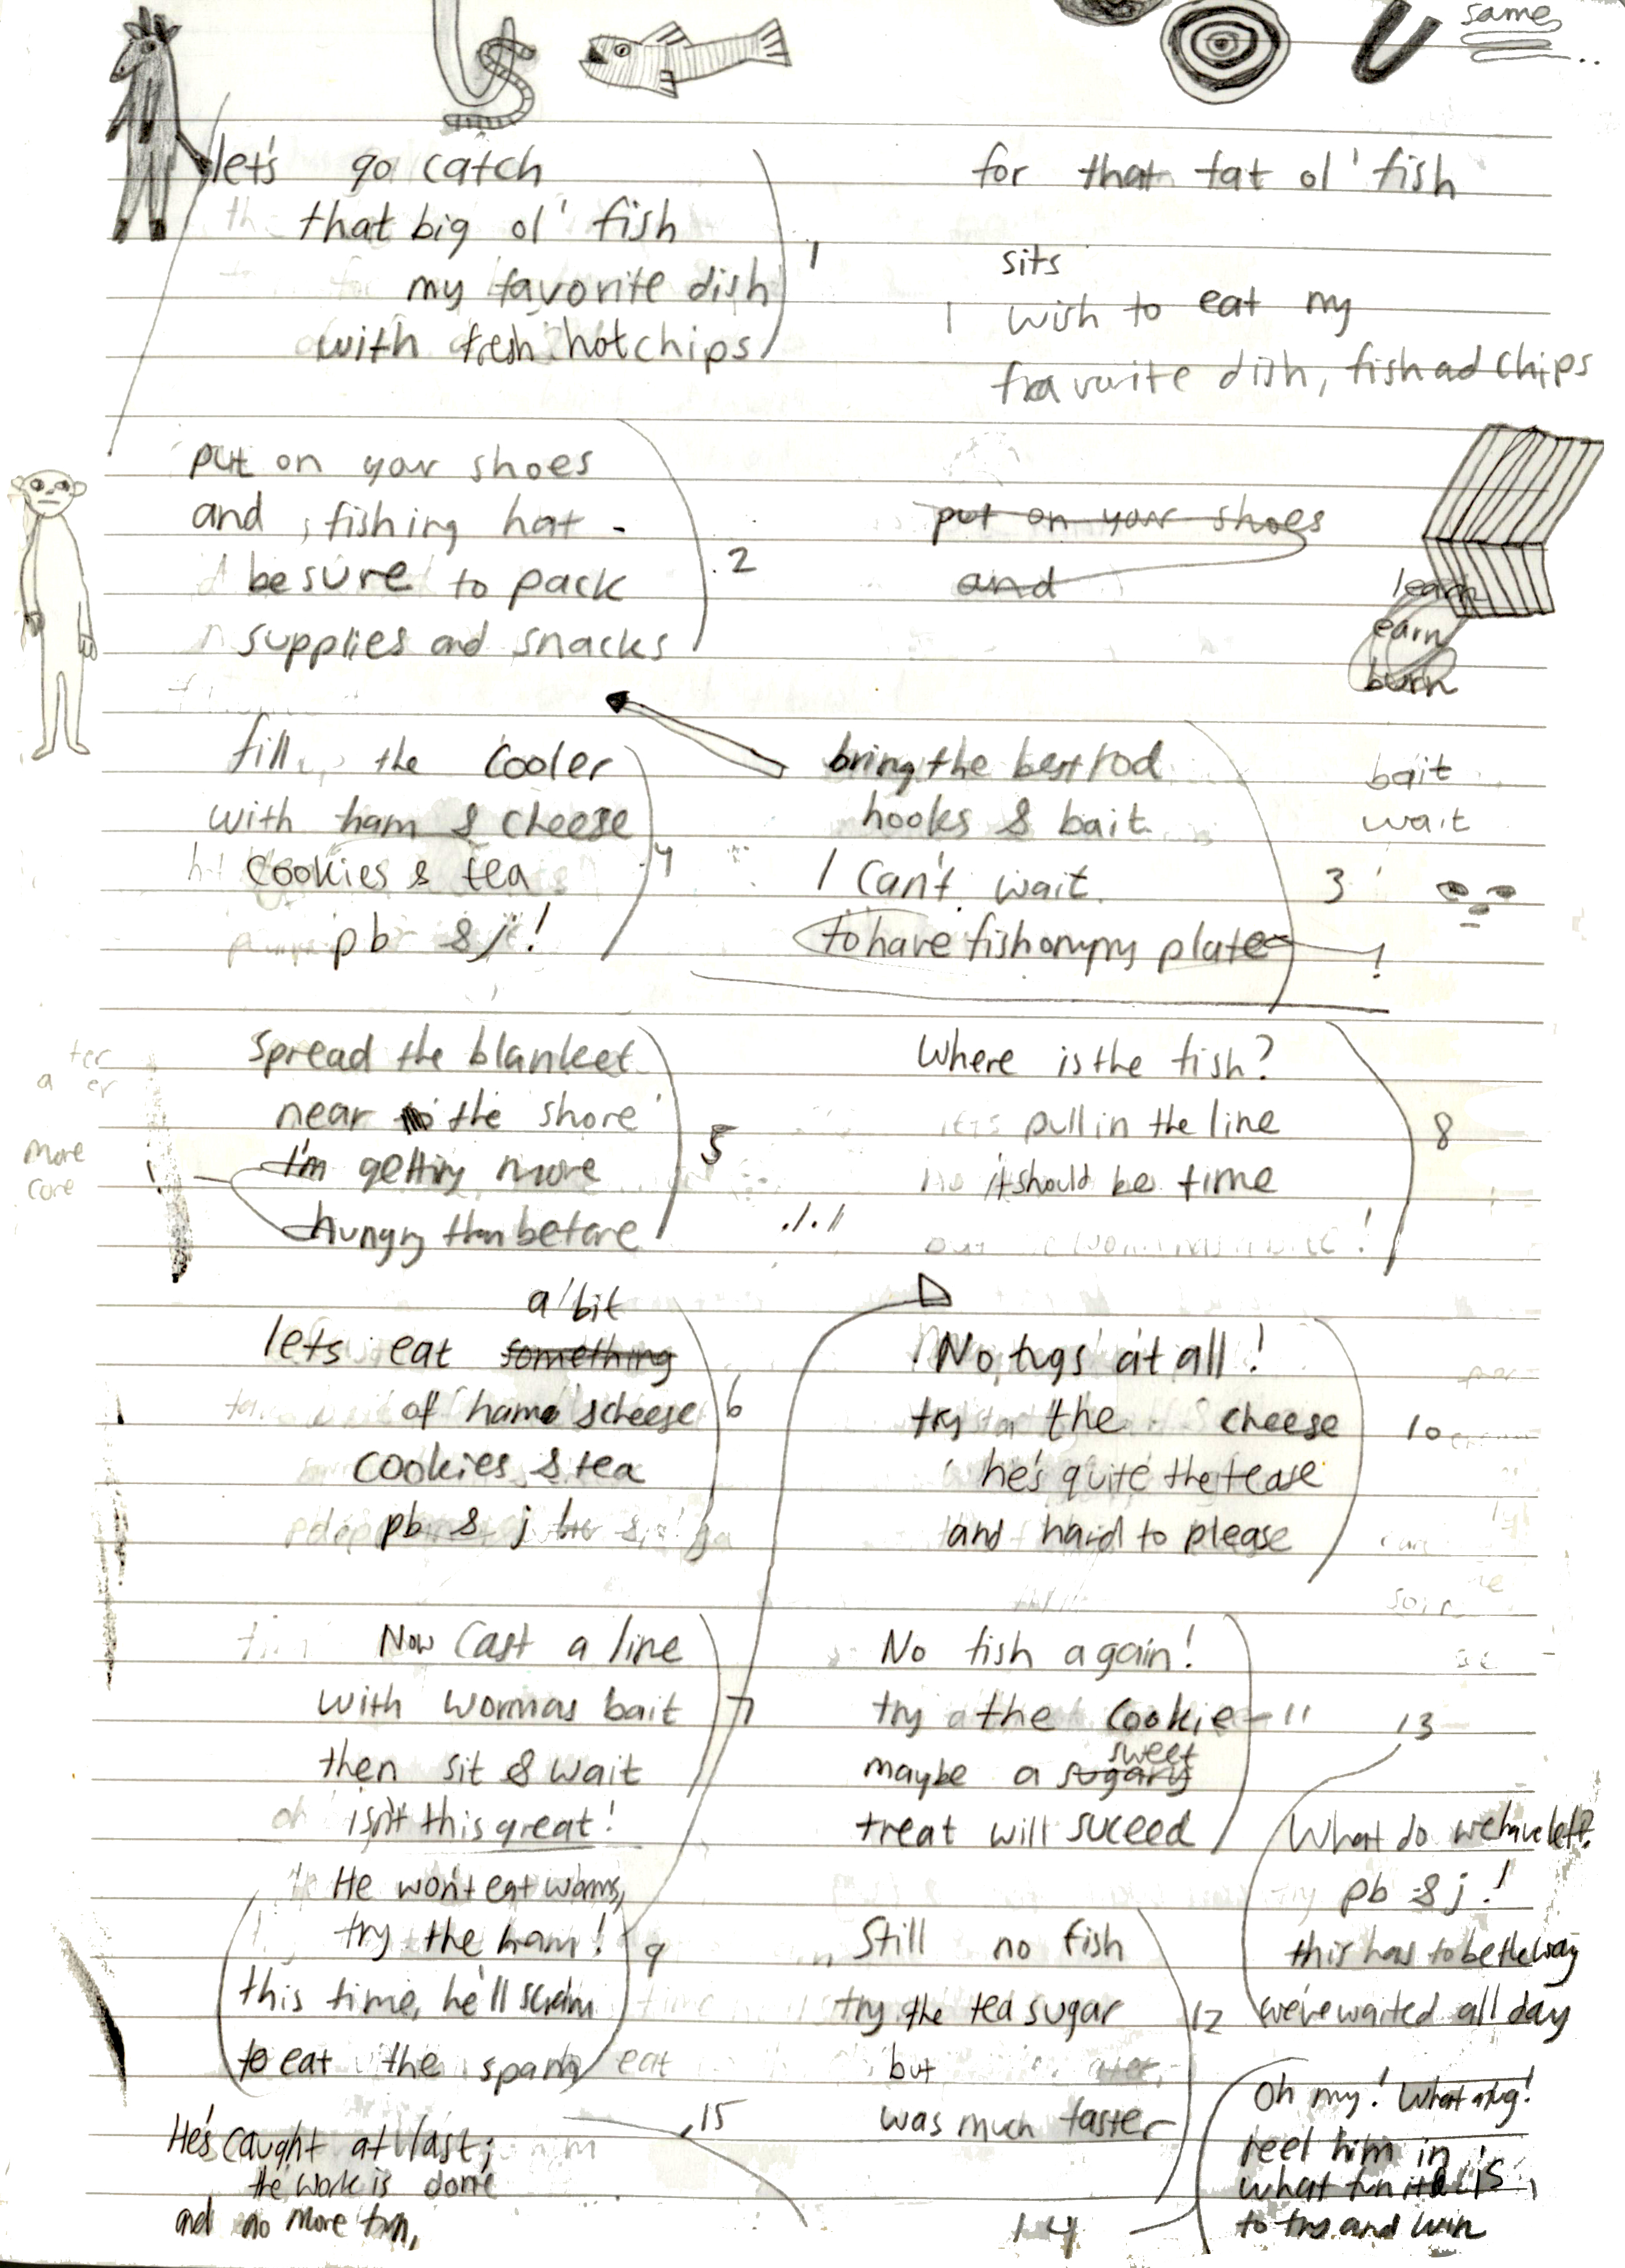 same
let's go catch
that big ol' fish
my favorite dish
with fresh hot chips
1
for that fat ol' fish
sits
I wish to eat my
favorite dish, fish ad chips
put on your shoes
and fishing hat
be sure to pack
supplies and snacks
2
put on your shoes
and
learn
earn
burn
fill the cooler
with ham & cheese
cookies & tea
pb & j!
4
bring the best rod
hooks & bait
I can't wait
to have fish on my plate
!
3
bait
wait
Spread the blanket
near the shore
I'm getting more
hungry than before
5
more
core
Where is the fish?
let's pull in the line
it should be time
8
a bit
lets eat something
of ham & cheese
cookies & tea
pb & j
6
No tugs at all!
try the cheese
he's quite the tease
and hard to please
10
Now cast a line
with worm as bait
then sit & wait
isn't this great!
7
No fish again!
try the cookie
sweet
maybe a sugary
treat will suceed
11
He won't eat worms,
try the ham!
this time, he'll scram
to eat the spam
9
Still no fish
try the tea sugar
but
was much faster
12
13
What do we have left?
pb & j!
this has to be the way
we've waited all day
Oh my! What a tug!
reel him in
what fun it is
to try and win
14
He's caught at last;
the work is done
and no more fun,
15